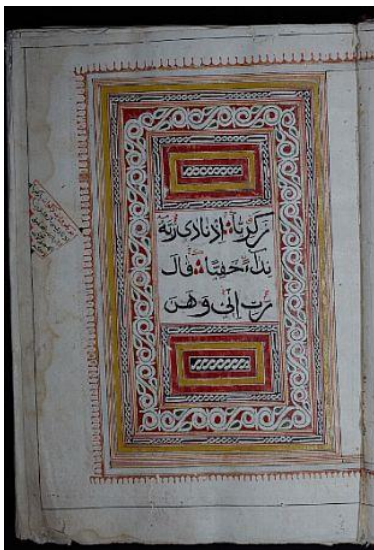 زَكَرِيَّآءَ إِذْ نَادَىٰ رَبَّهُ
نِدَآءً خَفِيًّا قَالَ
رَبِّ إِنِّي وَهَنَ